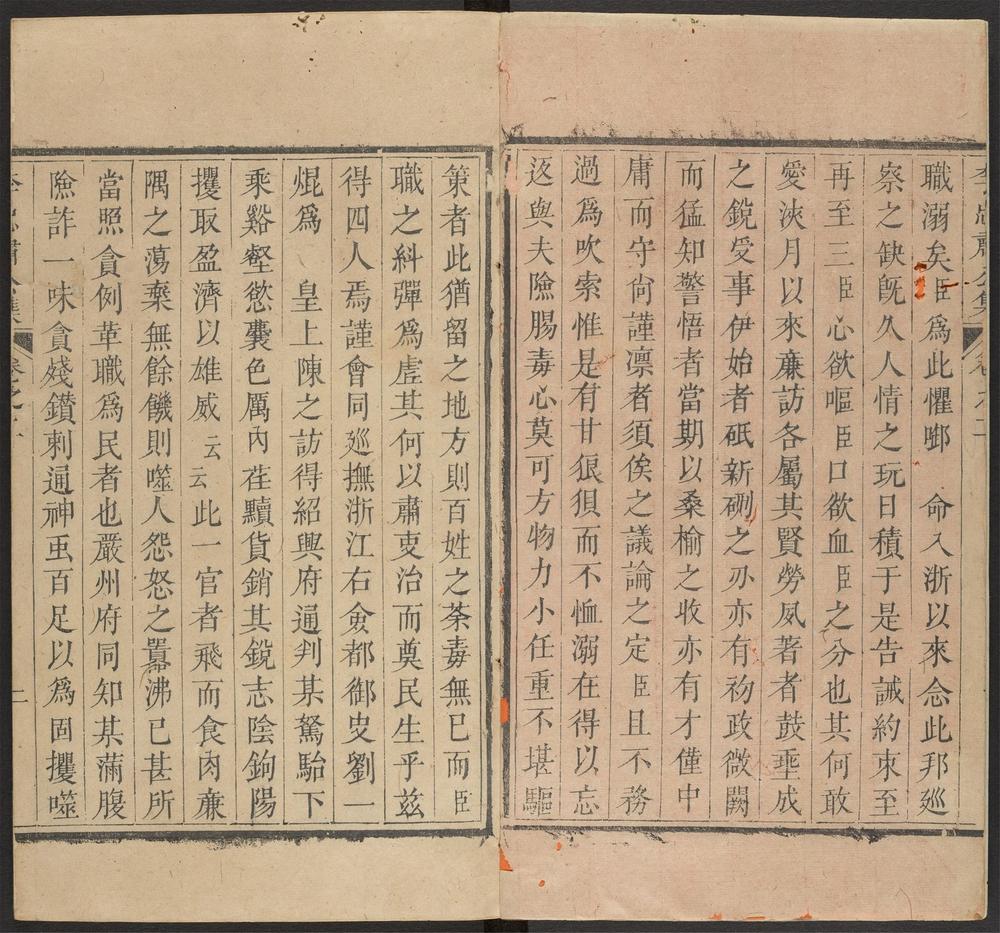 李忠肅公集
職溺矣臣為此懼啣　命入浙以來念此邦廵
察之缺旣久人情之玩日積于是告誡約束至
再至三臣心欲嘔臣口欲血臣之分也其何敢
愛浹月以來亷訪各屬其賢勞夙著者鼓壑成
之鋭受事伊始者砥新硎之刅亦有初政微闕
而猛知警悟者當期以桑榆之收亦有才僅中
庸而守尙謹凛者須俟之議論之定臣且不務
過為吹索惟是有甘狠狽而不恤溺在得以忘
返與夫險賜毒心莫可方物力小任重不堪驅
策者此猶留之地方則百姓之荼毒無已而臣
職之糾彈為虗其何以肅吏治而奠民生乎兹
得四人焉謹會同廵撫浙江右僉都御史劉一
焜為　皇上陳之訪得紹興府通判某駑駘下
乘谿壑慾囊色厲內荏黷貨銷其鋭志陰鉤陽
攫取盈濟以雄威云云此一官者飛而食肉亷
隅之蕩棄無餘饑則噬人怨怒之嚚沸已甚所
當照貪例革職為民者也嚴州府同知某滿腹
險詐一味貪殘鑚刺通神虽百足以為固攫噬
李忠肅公集
二